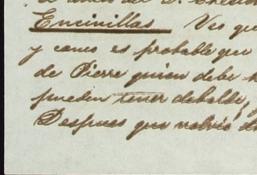 Encinillas Veo que
y como es probable que
de Pierre quien debe
pueden tener debalde,
Despues que volvió